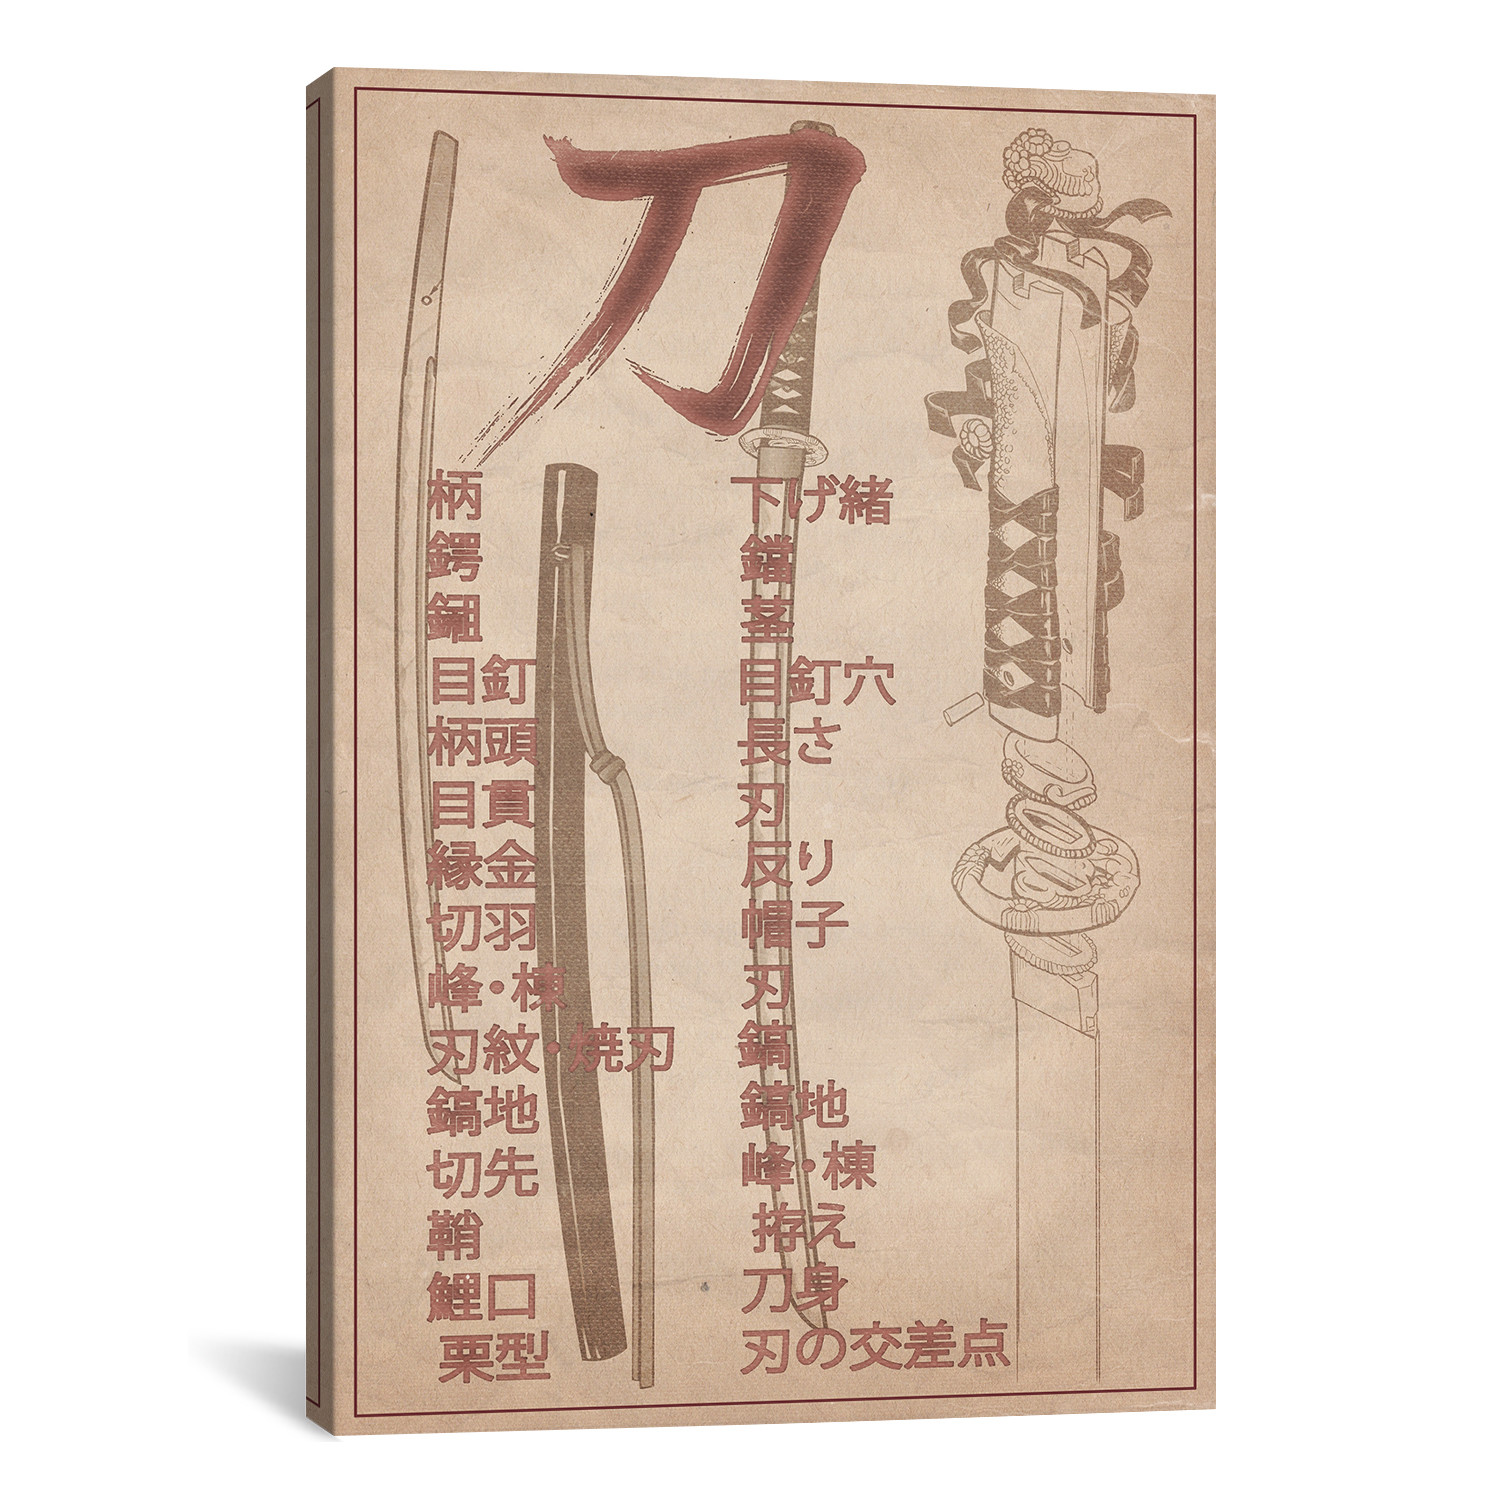 刀
柄
鍔
鎺
目釘
柄頭
目貫
縁金
切羽
峰・棟
刃紋・焼刃
鎬地
切先
鞘
鯉口
栗型
下げ緒
鐺
茎
目釘穴
長さ
刃
反り
帽子
刃
鎬
鎬地
峰・棟
拵え
刀身
刃の交差点